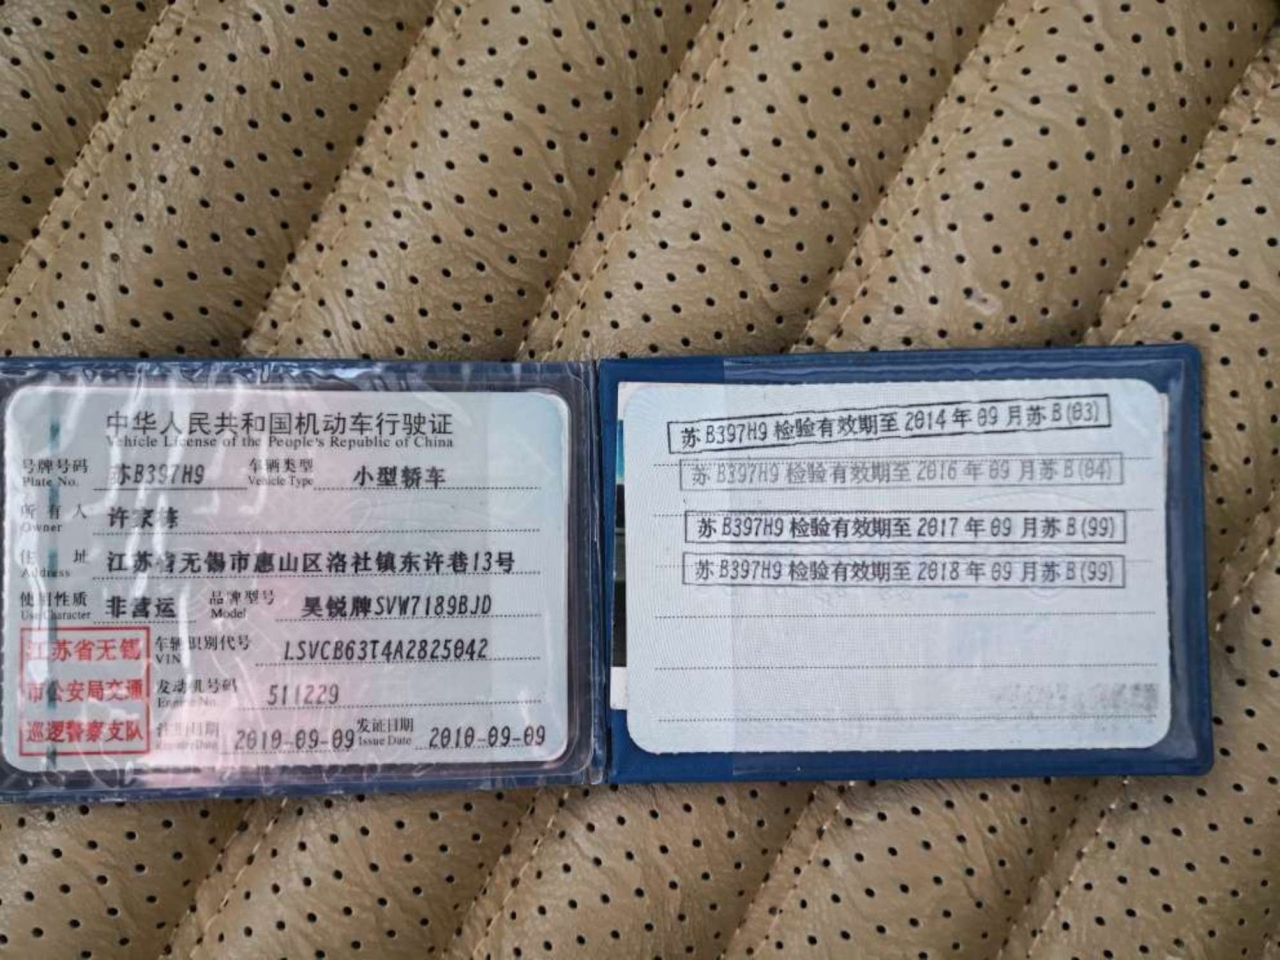 中华人民共和国机动车行驶证
Vehicle License of the People's Republic of China
号牌号码 苏B397H9 车辆类型 小型轿车
Plate No. Vehicle Type
所有人 许家栋
Owner
住址 江苏省无锡市惠山区洛社镇东许巷13号
Address
使用性质 非营运 品牌型号 昊锐牌SVW7189BJD
Use Character Model
江苏省无锡 车辆识别代号 LSVCB63T4A2825042
VIN
市公安局交通 发动机号码 511229
Engine No.
巡逻警察支队 注册日期 2010-09-09 发证日期 2010-09-09
Register Date Issue Date
苏B397H9 检验有效期至 2014年09月苏B(03)
苏B397H9 检验有效期至 2016年09月苏B(04)
苏B397H9 检验有效期至 2017年09月苏B(99)
苏B397H9 检验有效期至 2018年09月苏B(99)